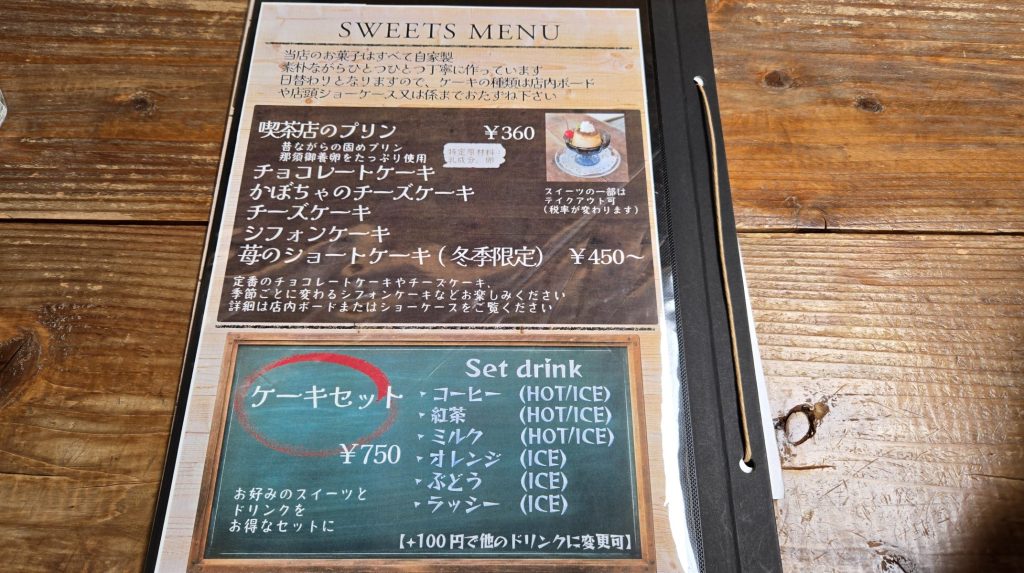 SWEETS MENU
当店のお菓子はすべて自家製
素朴ながらひとつひとつ丁寧に作っています
日替わりとなりますので、ケーキの種類は店内ボード
や店頭ショーケース又は係までおたずね下さい
喫茶店のプリン ¥360
昔ながらの固めプリン
那須御養卵をたっぷり使用
特定原材料：
乳成分、卵
チョコレートケーキ
かぼちゃのチーズケーキ
チーズケーキ
シフォンケーキ
苺のショートケーキ（冬季限定） ¥450～
スイーツの一部は
テイクアウト可
（税率が変わります）
定番のチョコレートケーキやチーズケーキ、
季節ごとに変わるシフォンケーキなどお楽しみください
詳細は店内ボードまたはショーケースをご覧ください
ケーキセット
¥750
お好みのスイーツと
ドリンクを
お得なセットに
Set drink
コーヒー (HOT/ICE)
紅茶 (HOT/ICE)
ミルク (HOT/ICE)
オレンジ (ICE)
ぶどう (ICE)
ラッシー (ICE)
【+100円で他のドリンクに変更可】